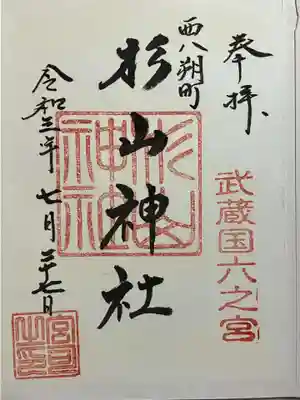 奉拝
武蔵国六之宮
西八朔町
杉山神社
杉山神社
令和三年七月二十七日
宮司之印